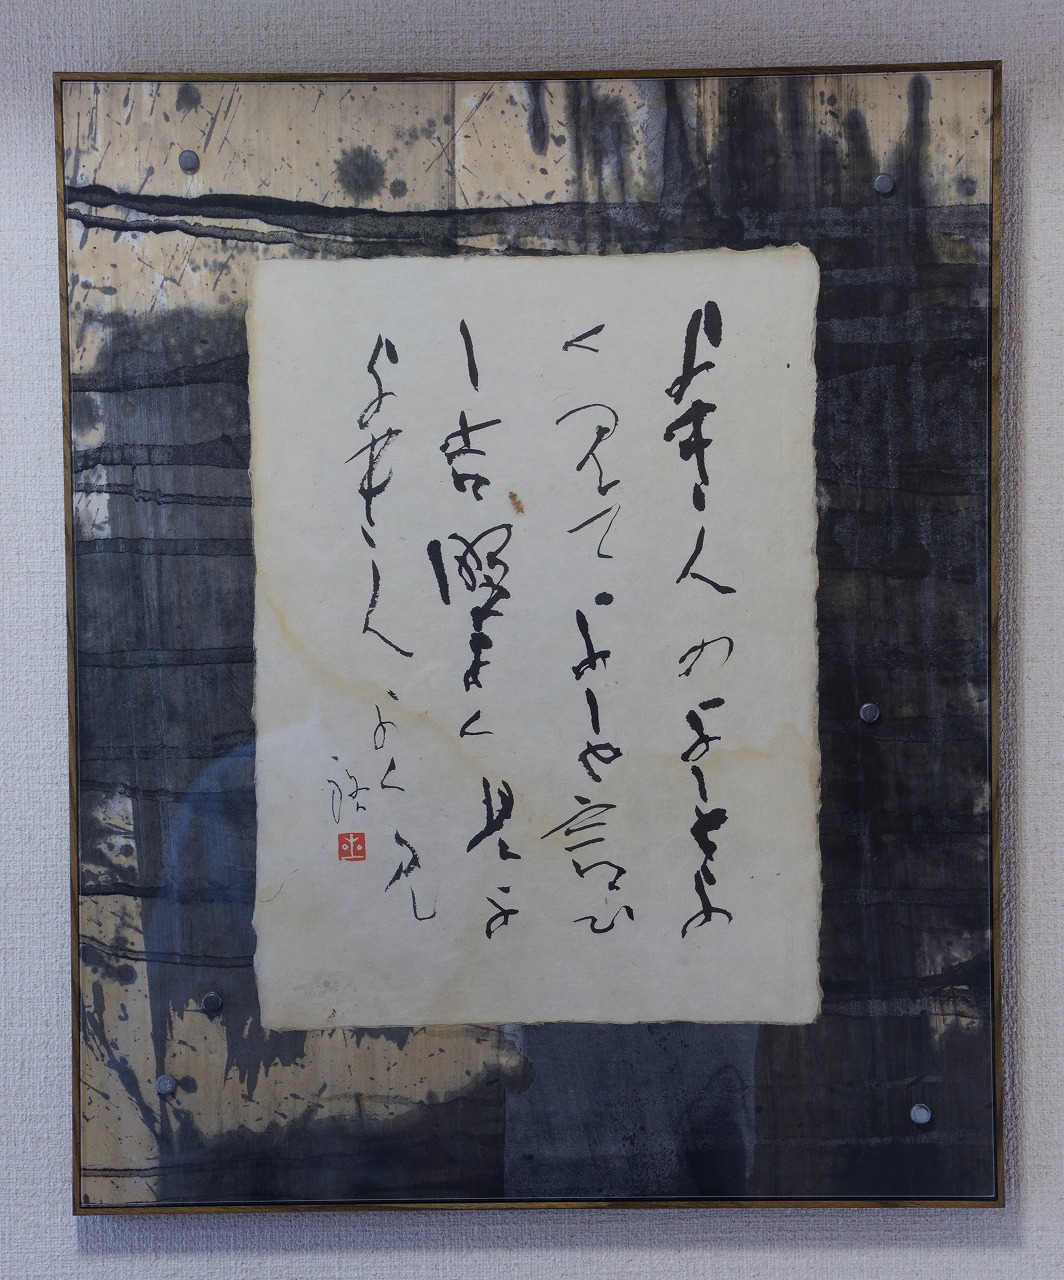 よき人のよしとよ
く見てよしと言ひ
し吉野よく見よ
よき人よく見